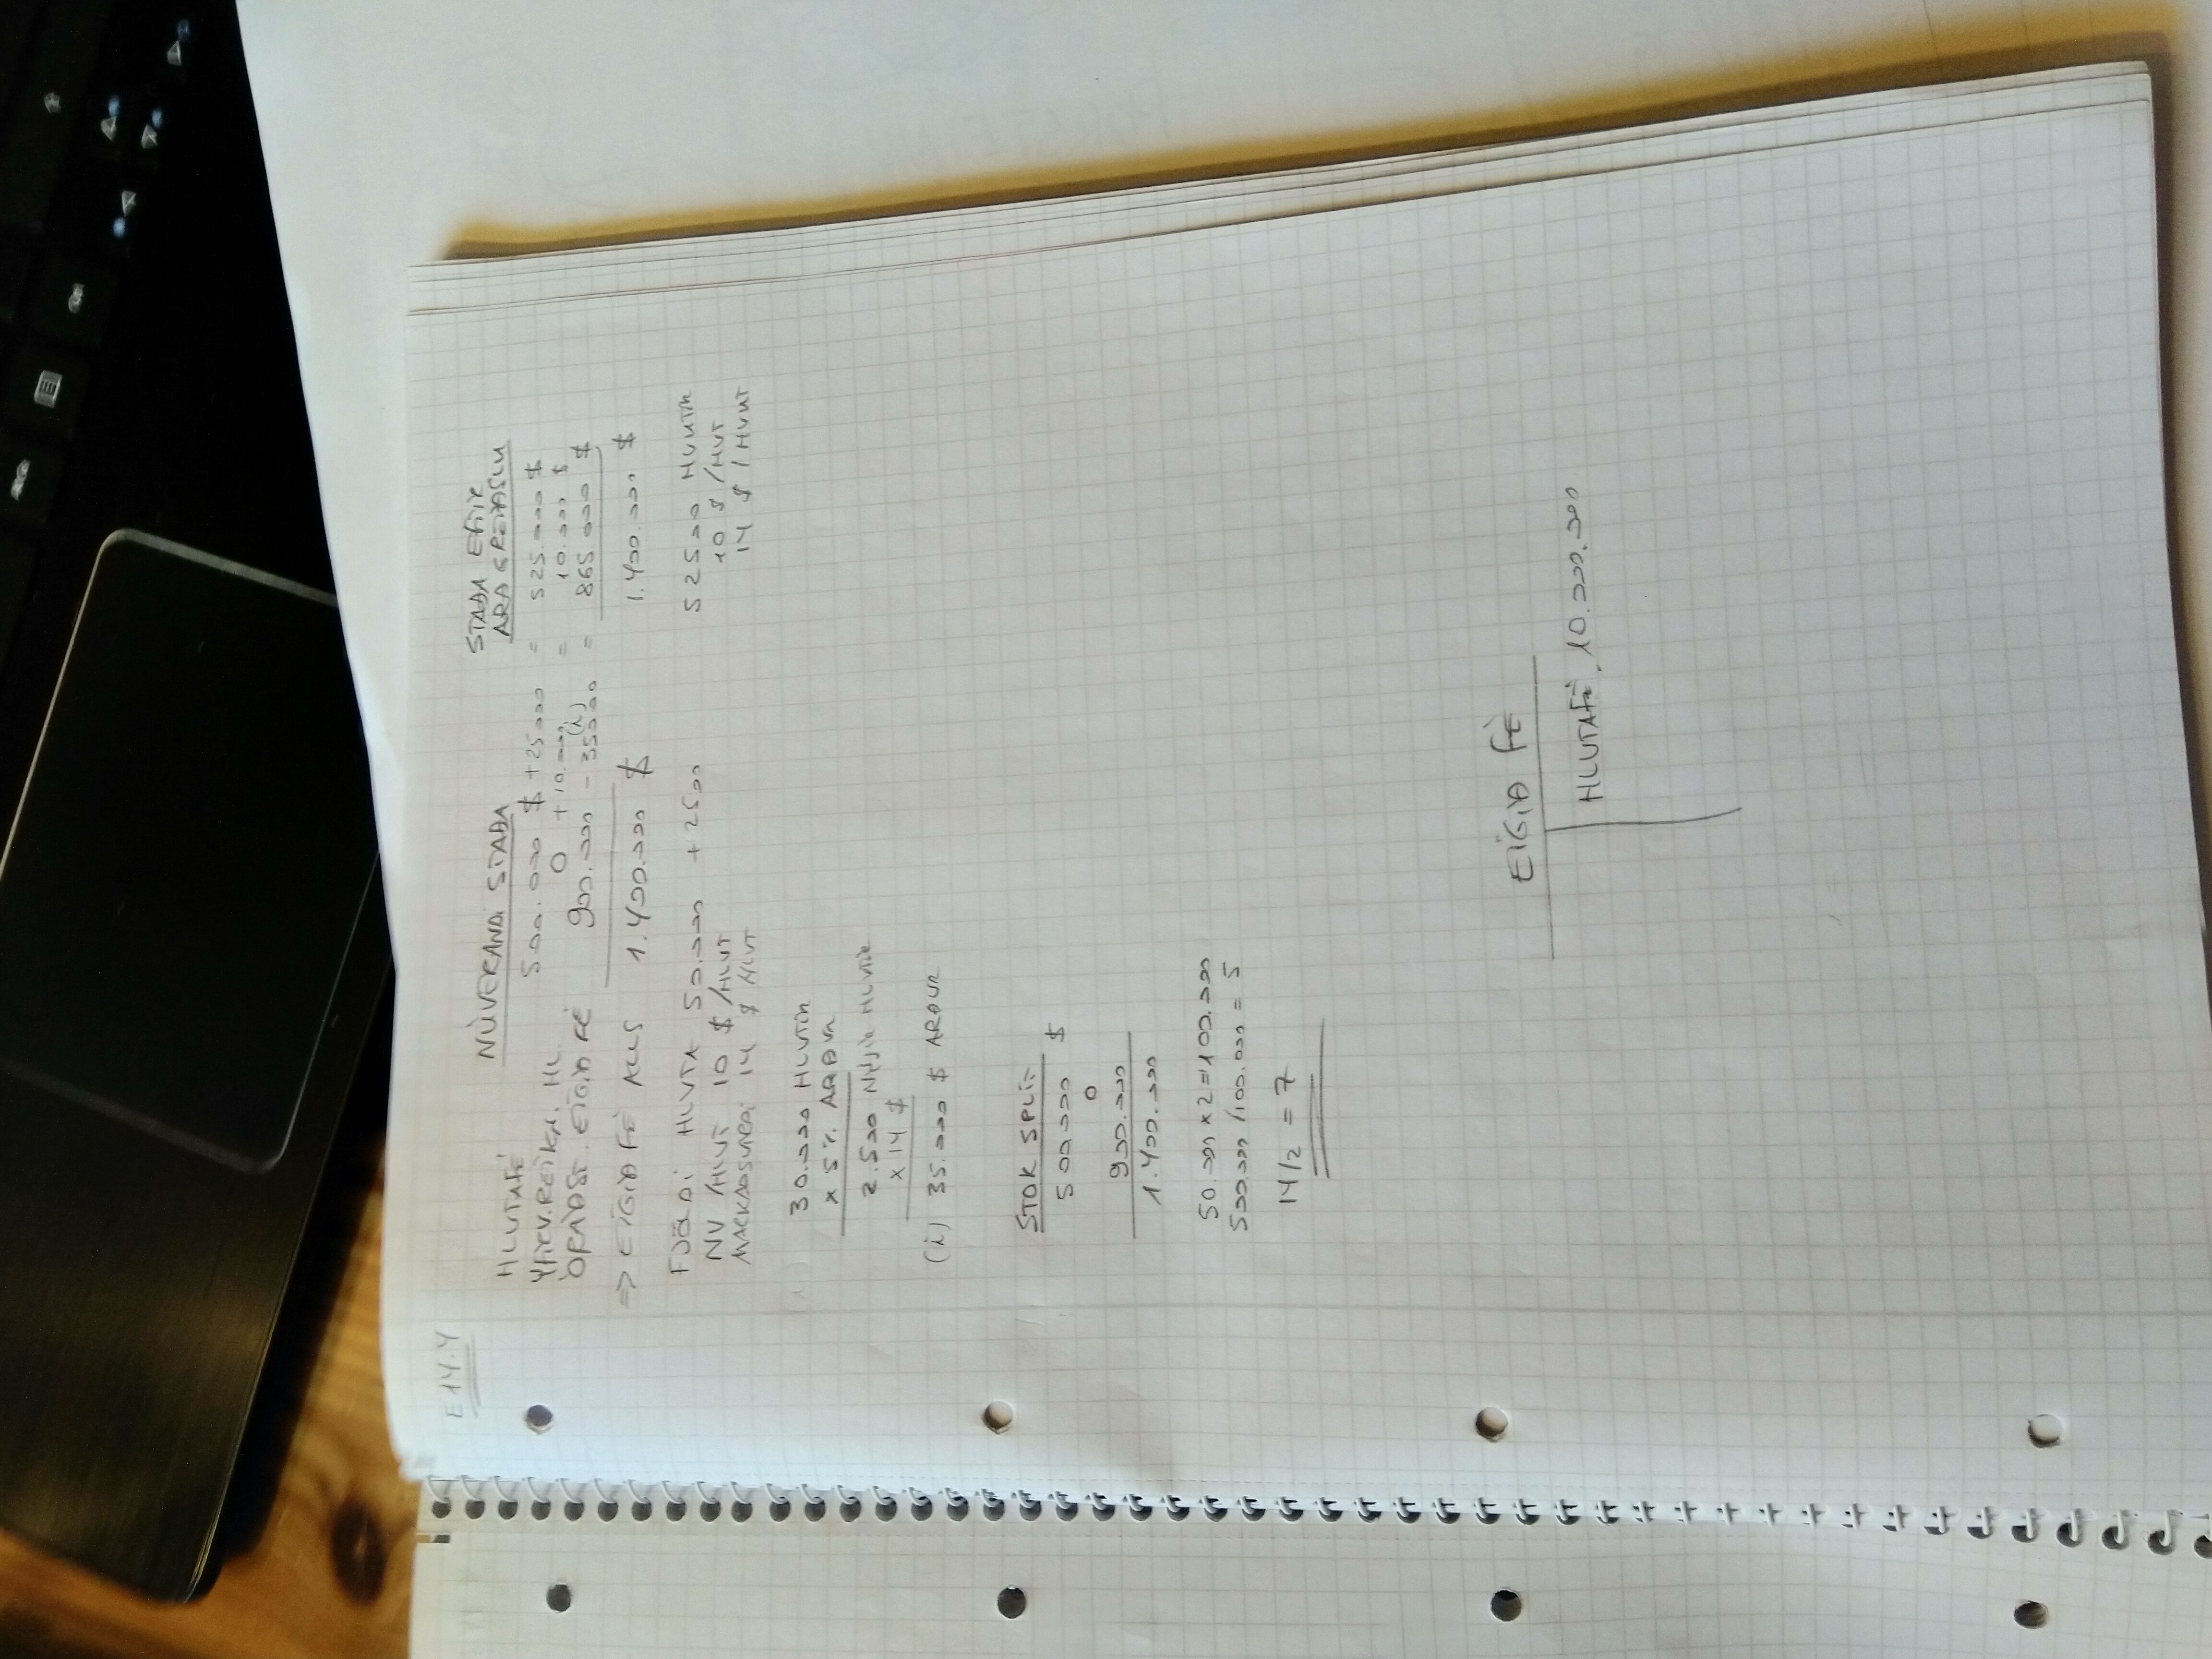 E14.4
NÚVERANDI STAÐA
STAÐA EFTIR
ARÐGREIÐSLU
HLUTAFÉ 500.000 $ + 25000 = 525.000 $
YFIRV.REIKN. HL. 0 + 10.000 = 10.000 $
ÓRÁÐST. EIGIÐ FÉ 900.000 - 35000 (i) = 865 000 $
=> EIGIÐ FÉ ALLS 1.400.000 $ 1.400.000 $
FJÖLDI HLUTA 50.000 + 2500 52500 HLUTIR
NV /HLUT 10 $ /HLUT 10 $ /HUT
MARKAÐSVIRÐI 14 $ HLUT 14 $ / HLUT
30.000 HLUTIR
x 5% ARÐUR
2.500 NÝJIR HLUTIR
x 14 $
(i) 35.000 $ ARÐUR
STOK SPLIT
500.000 $
0
900.000
1.400.000
50.000 x 2 = 100.000
500.000 /100.000 = 5
14/2 = 7
EIGIÐ FÉ
HLUTAFÉ. 10.000.000